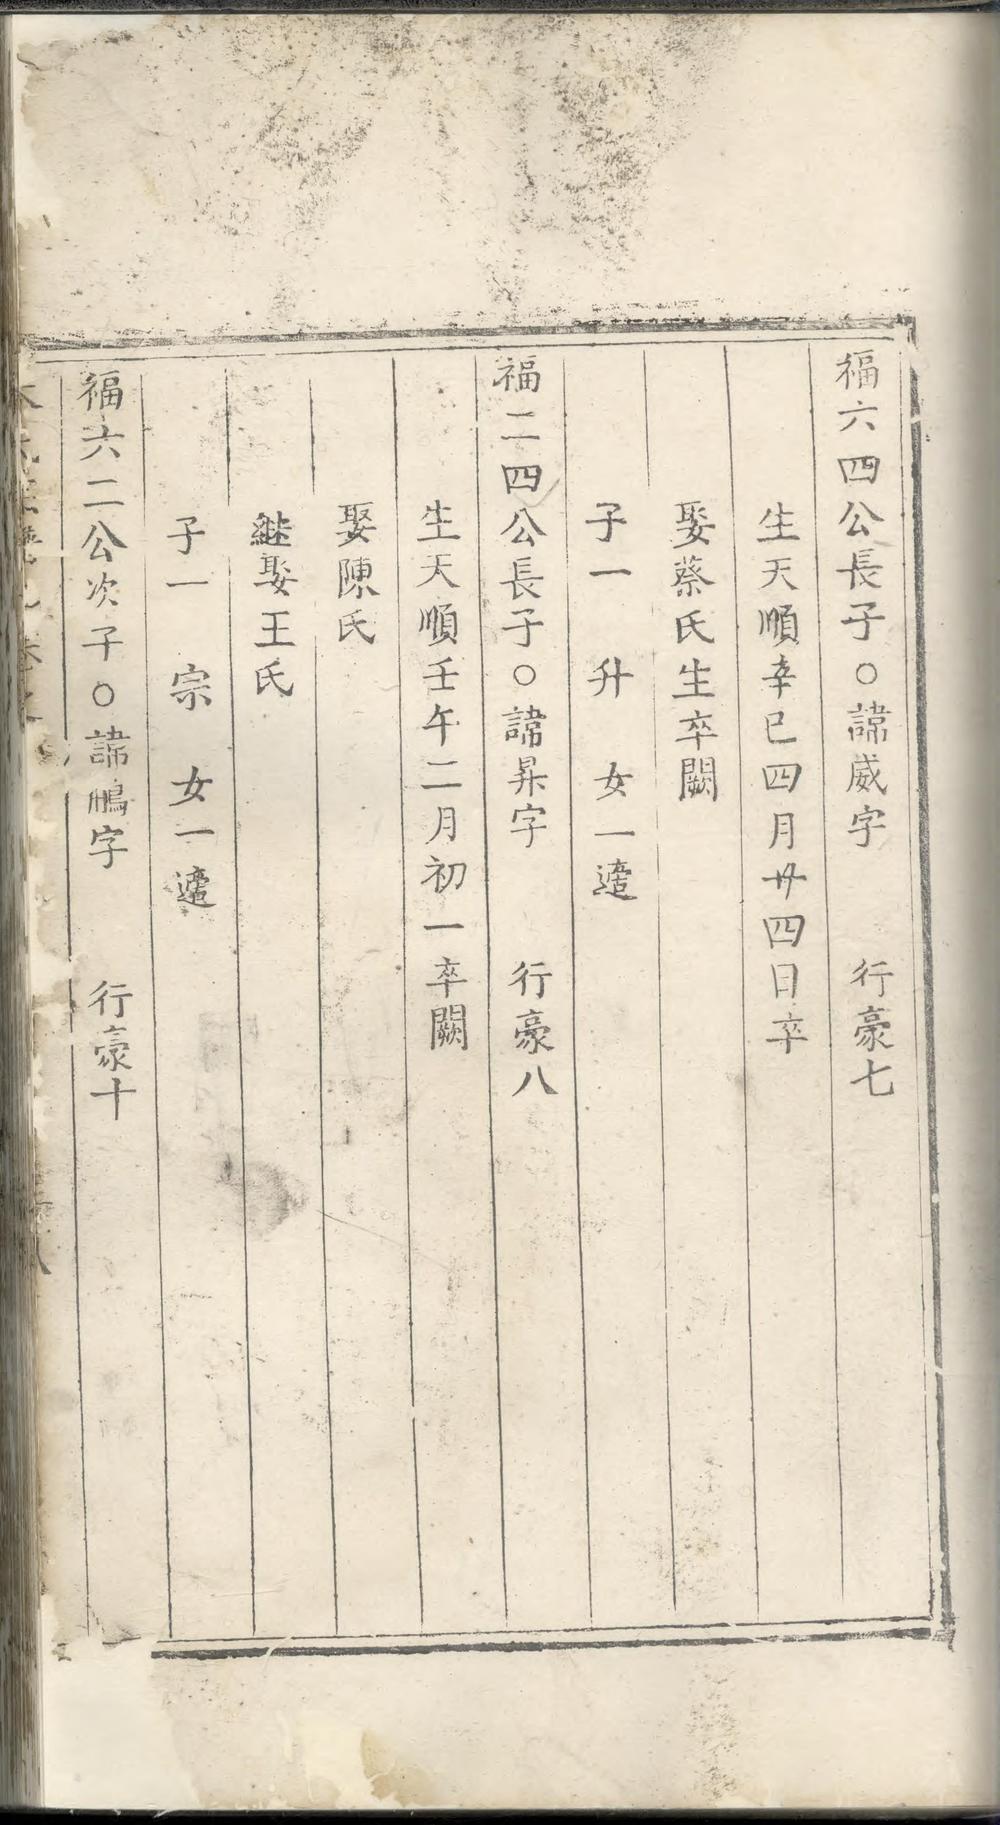 福六四公長子○諱威字　行豪七
生天順辛巳四月廿四日卒
娶蔡氏生卒闕
子一　升　女一適
福二四公長子○諱昇字　行豪八
生天順壬午二月初一卒闕
娶陳氏
繼娶王氏
子一　宗　女一適
福六二公次子○諱鵬字　行豪十